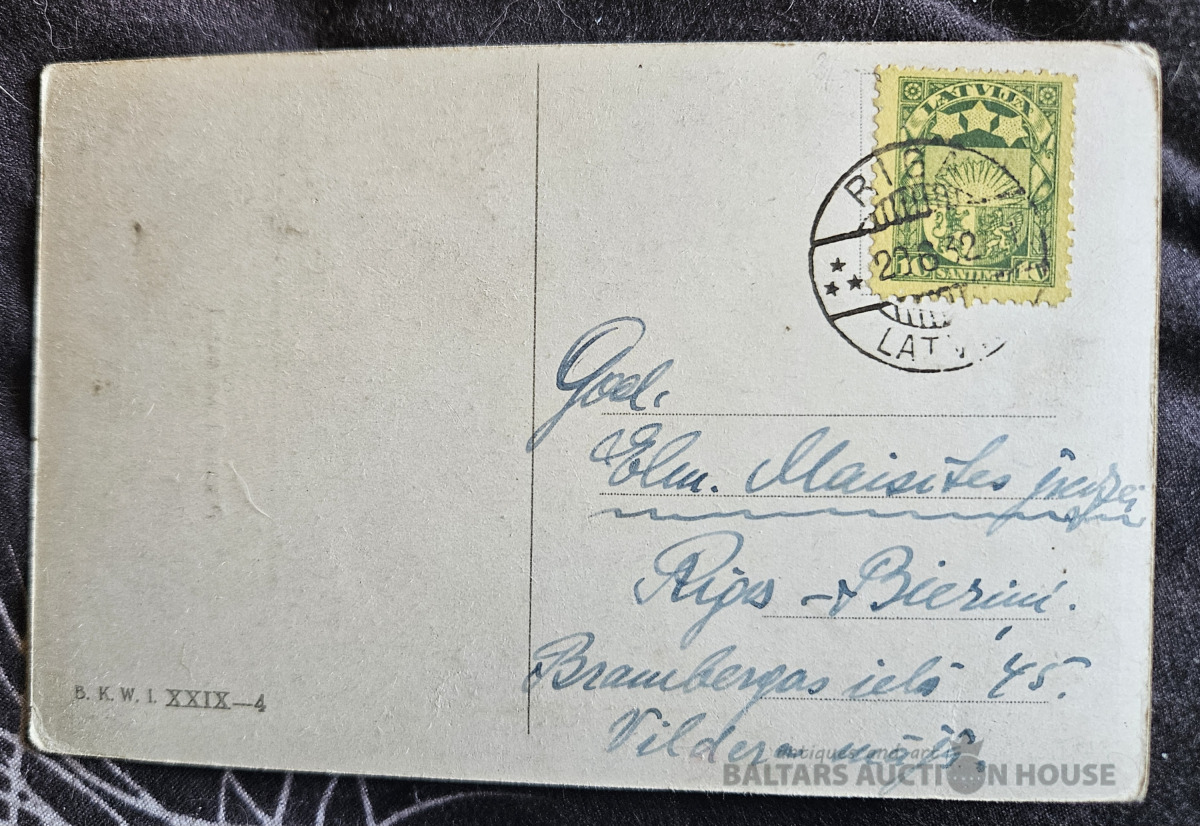 LATVIJA
SANTIMI
RIGA
20 6 32
LATV
God.
Elm. Maisītes jkdzei
Rīgā - Bieriņi.
Brambergas ielā 45.
B. K. W. I. XXIX—4
antiques and art
BALTARS AUCTION HOUSE